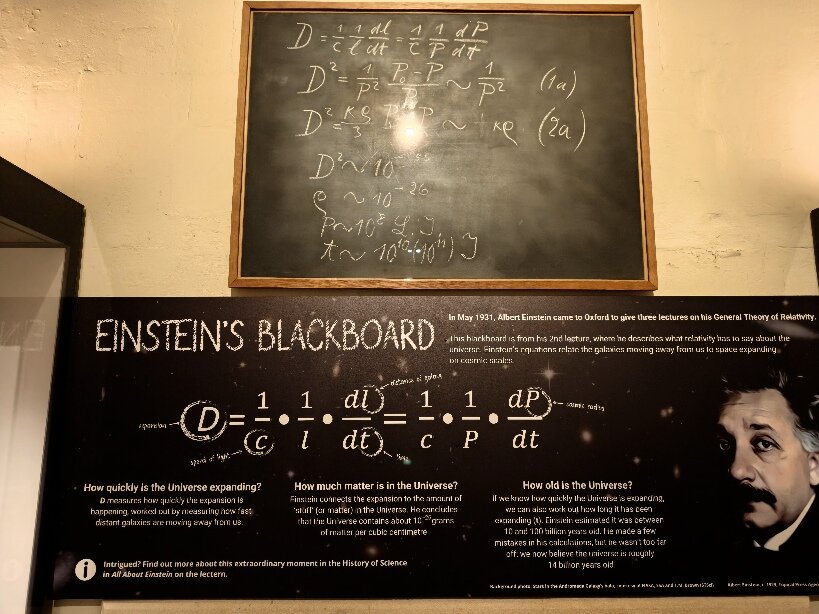 D = 1/c 1/l dl/dt = 1/c 1/P dP/dt
D² = 1/P² P₀-P/P ~ 1/P² (1a)
D² = κϱ/3 ~ κϱ (2a)
D² ~ 10
ϱ ~ 10⁻²⁶
P ~ 10⁸ L.J.
t ~ 10¹⁰(10¹¹) J
EINSTEIN'S BLACKBOARD
In May 1931, Albert Einstein came to Oxford to give three lectures on his General Theory of Relativity.
This blackboard is from his 2nd lecture, where he describes what relativity has to say about the
universe. Einstein's equations relate the galaxies moving away from us to space expanding
on cosmic scales.
distance of galaxy
expansion
D = 1/c • 1/l • dl/dt = 1/c • 1/P • dP/dt
cosmic radius
speed of light
time
How quickly is the Universe expanding?
D measures how quickly the expansion is
happening, worked out by measuring how fast
distant galaxies are moving away from us.
How much matter is in the Universe?
Einstein connects the expansion to the amount of
'stuff' (or matter) in the Universe. He concludes
that the Universe contains about 10⁻²⁶grams
of matter per cubic centimetre
How old is the Universe?
If we know how quickly the Universe is expanding,
we can also work out how long it has been
expanding (t). Einstein estimated it was between
10 and 100 billion years old. He made a few
mistakes in his calculations, but he wasn't too far
off: we now believe the universe is roughly
14 billion years old
i
Intrigued? Find out more about this extraordinary moment in the History of Science
in All About Einstein on the lectern.
Background photo: Stars in the Andromeda Galaxy's halo, NASA, ESA and T.M. Brown (STScI)
Albert Einstein, c 1929,